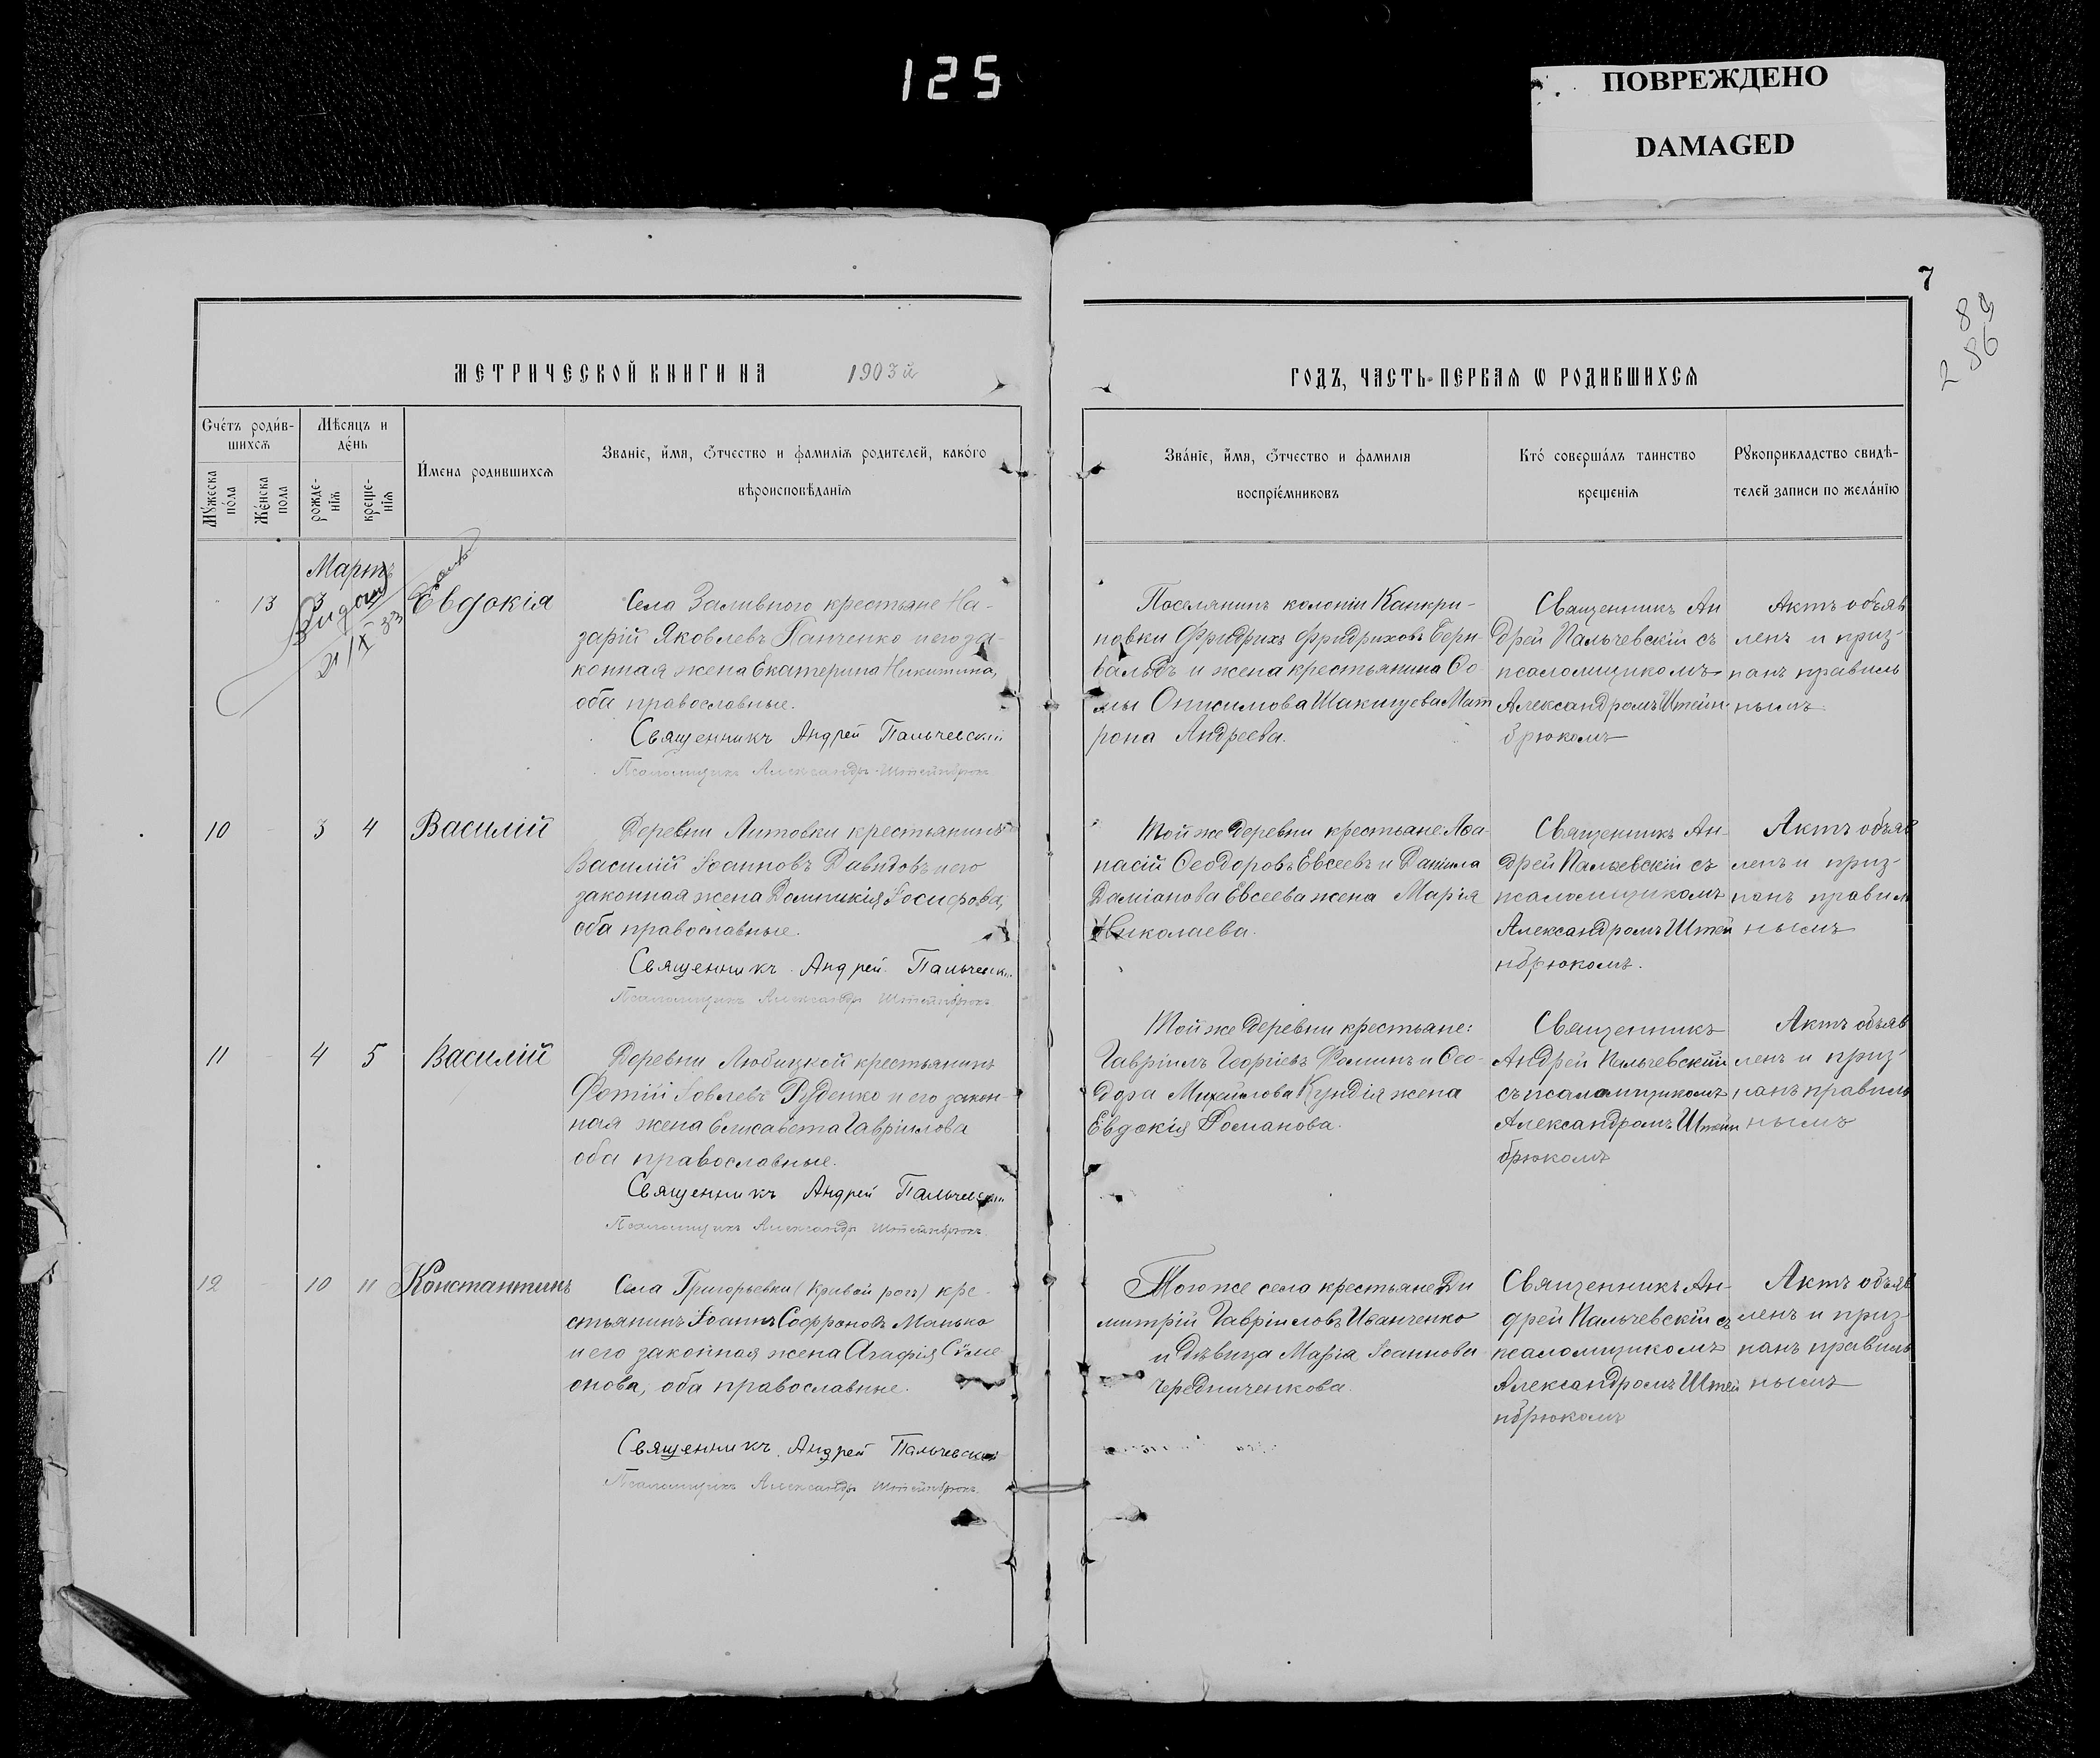 125
ПОВРЕЖДЕНО
DAMAGED
7
89
286
МЕТРИЧЕСКОЙ КНИГИ НА 1903й
ГОДЪ, ЧАСТЬ ПЕРВАЯ Ѡ РОДИВШИХСЯ
Счетъ родив-
шихся
Мѣсяцъ и
день
Мужеска
пола
Женска
пола
рожде-
нія
креще-
нія
Имена родившихся
Званіе, имя, отчество и фамилія родителей, какого
вѣроисповѣданія
Званіе, имя, отчество и фамилія
воспріемниковъ
Кто совершалъ таинство
крещенія
Рукоприкладство свидѣ-
телей записи по желанію
Мартъ
13 3 Евдокія
21/X 33
Села Заливного крестьяне На-
зарій Яковлевъ Панченко и его за-
конная жена Екатерина Никитина,
оба православные.
Священникъ Андрей Пальчевскій
Псаломщикъ Александръ Штейнбрюкъ
Поселянинъ колоніи Канкри-
новки Фридрихъ Фридриховъ Берн-
вальдъ и жена крестьянина Ѳо
мы Онисимова Шакицева Мат
рона Андреева.
Священникъ Ан
дрей Пальчевскій съ
псаломщикомъ
Александромъ Штейн-
брюкомъ
Актъ объяв
ленъ и приз-
нанъ правиль
нымъ
10 3 4 Василій
Деревни Литовки крестьянинъ
Василій Іоанновъ Давидовъ и его
законная жена Домникія Іосифова,
оба православные.
Священникъ Андрей Пальчевскій
Псаломщикъ Александръ Штейнбрюкъ
Той же деревни крестьяне: Аѳа-
насій Ѳеодоровъ Евсеевъ и Даніила
Даміанова Евсеева жена Марія
Николаева.
Священникъ Ан-
дрей Пальчевскій съ
псаломщикомъ
Александромъ Штей
нбрюкомъ.
Актъ объяв
ленъ и приз-
нанъ правиль
нымъ
11 4 5 Василій
Деревни Любицкой крестьянинъ
Фотій Іовлевъ Руденко и его закон-
ная жена Елисавета Гавріилова
оба православные.
Священникъ Андрей Пальчевскій
Псаломщикъ Александръ Штейнбрюкъ
Той же деревни крестьяне:
Гавріилъ Георгіевъ Фоминъ и Ѳео-
дора Михайлова Кундія жена
Евдокія Романова.
Священникъ
Андрей Пальчевскій
съ псаломщикомъ
Александромъ Штейн
брюкомъ
Актъ объяв
ленъ и приз-
нанъ правиль
нымъ
12 10 11 Константинъ
Села Григорьевки (Кривой рогъ) кре-
стьянинъ Іоаннъ Софроновъ Манько
и его законная жена Агафія Сѵме
онова, оба православные.
Священникъ Андрей Пальчевскій
Псаломщикъ Александръ Штейнбрюкъ
Того же села крестьяне Ди
митрій Гавріиловъ Иванченко
и дѣвица Марія Іоаннова
Чередниченкова.
Священникъ Ан-
дрей Пальчевскій съ
псаломщикомъ
Александромъ Штей
нбрюкомъ
Актъ объяв
ленъ и приз-
нанъ правиль
нымъ